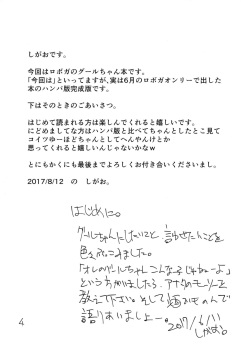 しがおです。
今回はロボガのグールちゃん本です。
「今回は」といってますが、実は6月のロボガオンリーで出した
本のハンパ版完成版です。
下はそのときのごあいさつ。
はじめて読まれる方は楽しんでくれると嬉しいです。
にどめましてな方はハンパ版と比べてちゃんとしたとこ見て
コイツゆーほどちゃんとしてへんやんけとか
思ってくれると嬉しいんじゃないかなw
とにもかくにも最後までよろしくお付き合いくださいまし。
2017/8/12 の しがお。
はじめに。
グールちゃんにしたいこと言わせたいことを
色々つめこみました。
「オレのグールちゃんこんな子じゃねーよ」
というかたいましたら、アナタのモーソーを
教えて下さい。そして麺おそんで
語りあいましょー。2017/6/11
しがお。
4